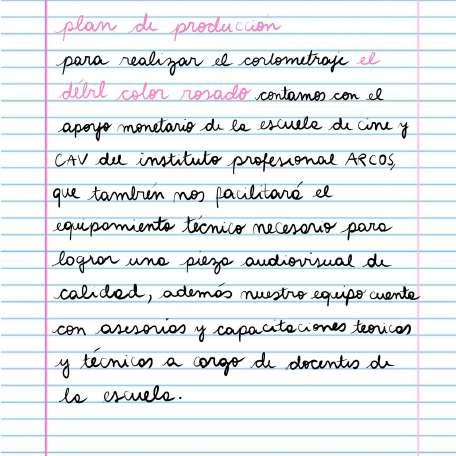 plan de producción
para realizar el cortometraje el
débil color rosado contamos con el
apoyo monetario de la escuela de cine y
CAV del instituto profesional ARCOS,
que también nos facilitará el
equipamiento técnico necesario para
lograr una pieza audiovisual de
calidad, además nuestro equipo cuenta
con asesorías y capacitaciones teoricas
y técnicas a cargo de docentes de
la escuela.